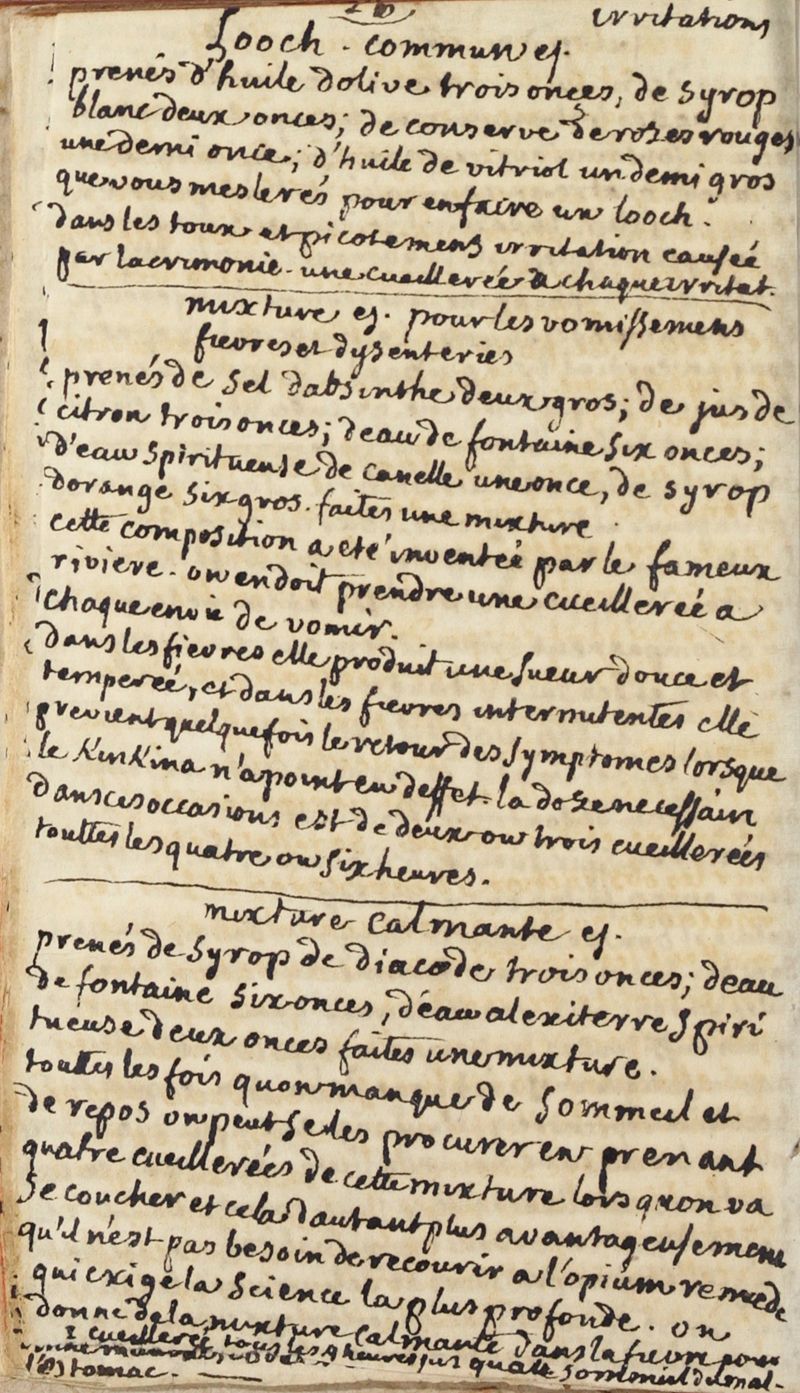 irritations
Looch. commun es.
prenés d'huile dolive trois onces, de syrop
blanc deux onces; de conserve de roses rouges
une demi once; d'huile de vitriol un demi gros
que vous meslerés pour en faire un looch.
dans les toux et picotemens irritation causeé
par lacrimonie. une cueillereé a chaque irritat.
mixture es. pour les vomissemens
fievres et dysenteries
prenés de sel dabsinthe deux gros; de jus de
citron trois onces; deau de fontaine six onces;
d'eau spiritueuse de canelle une once, de syrop
dorange six gros. faites une mixture
cette composition a eté inventeé par le fameux
riviere. on en doit prendre une cueillereé a
chaque envie de vomir.
dans les fievres elle produit une sueur douce et
tempereé, et dans les fievres intermitentes elle
previent quelquefois le retour des symptomes lorsque
le KinKina n'a point eu deffet. la doze necessaire
dans ces occasions est de deux ou trois cueillereés
touttes les quatre ou six heures.
mixture calmante es.
prenés de syrop de diacode trois onces; deau
de fontaine six onces, d'eau alexiterre spiri
tueuse deux onces faites une mixture.
touttes les fois quon manque de sommeil et
de repos on peut se les procurer en prenant
quatre cueillereés de cette mixture lors quon va
se coucher et cela dautant plus avantageusement
qu'il n'est pas besoin de recourir a l'opium remede
qui exige la science la plus profonde. on
donne de la mixture calmante dans la fievre pour
2 cueillereé tous les 4 heures
l'estomac.